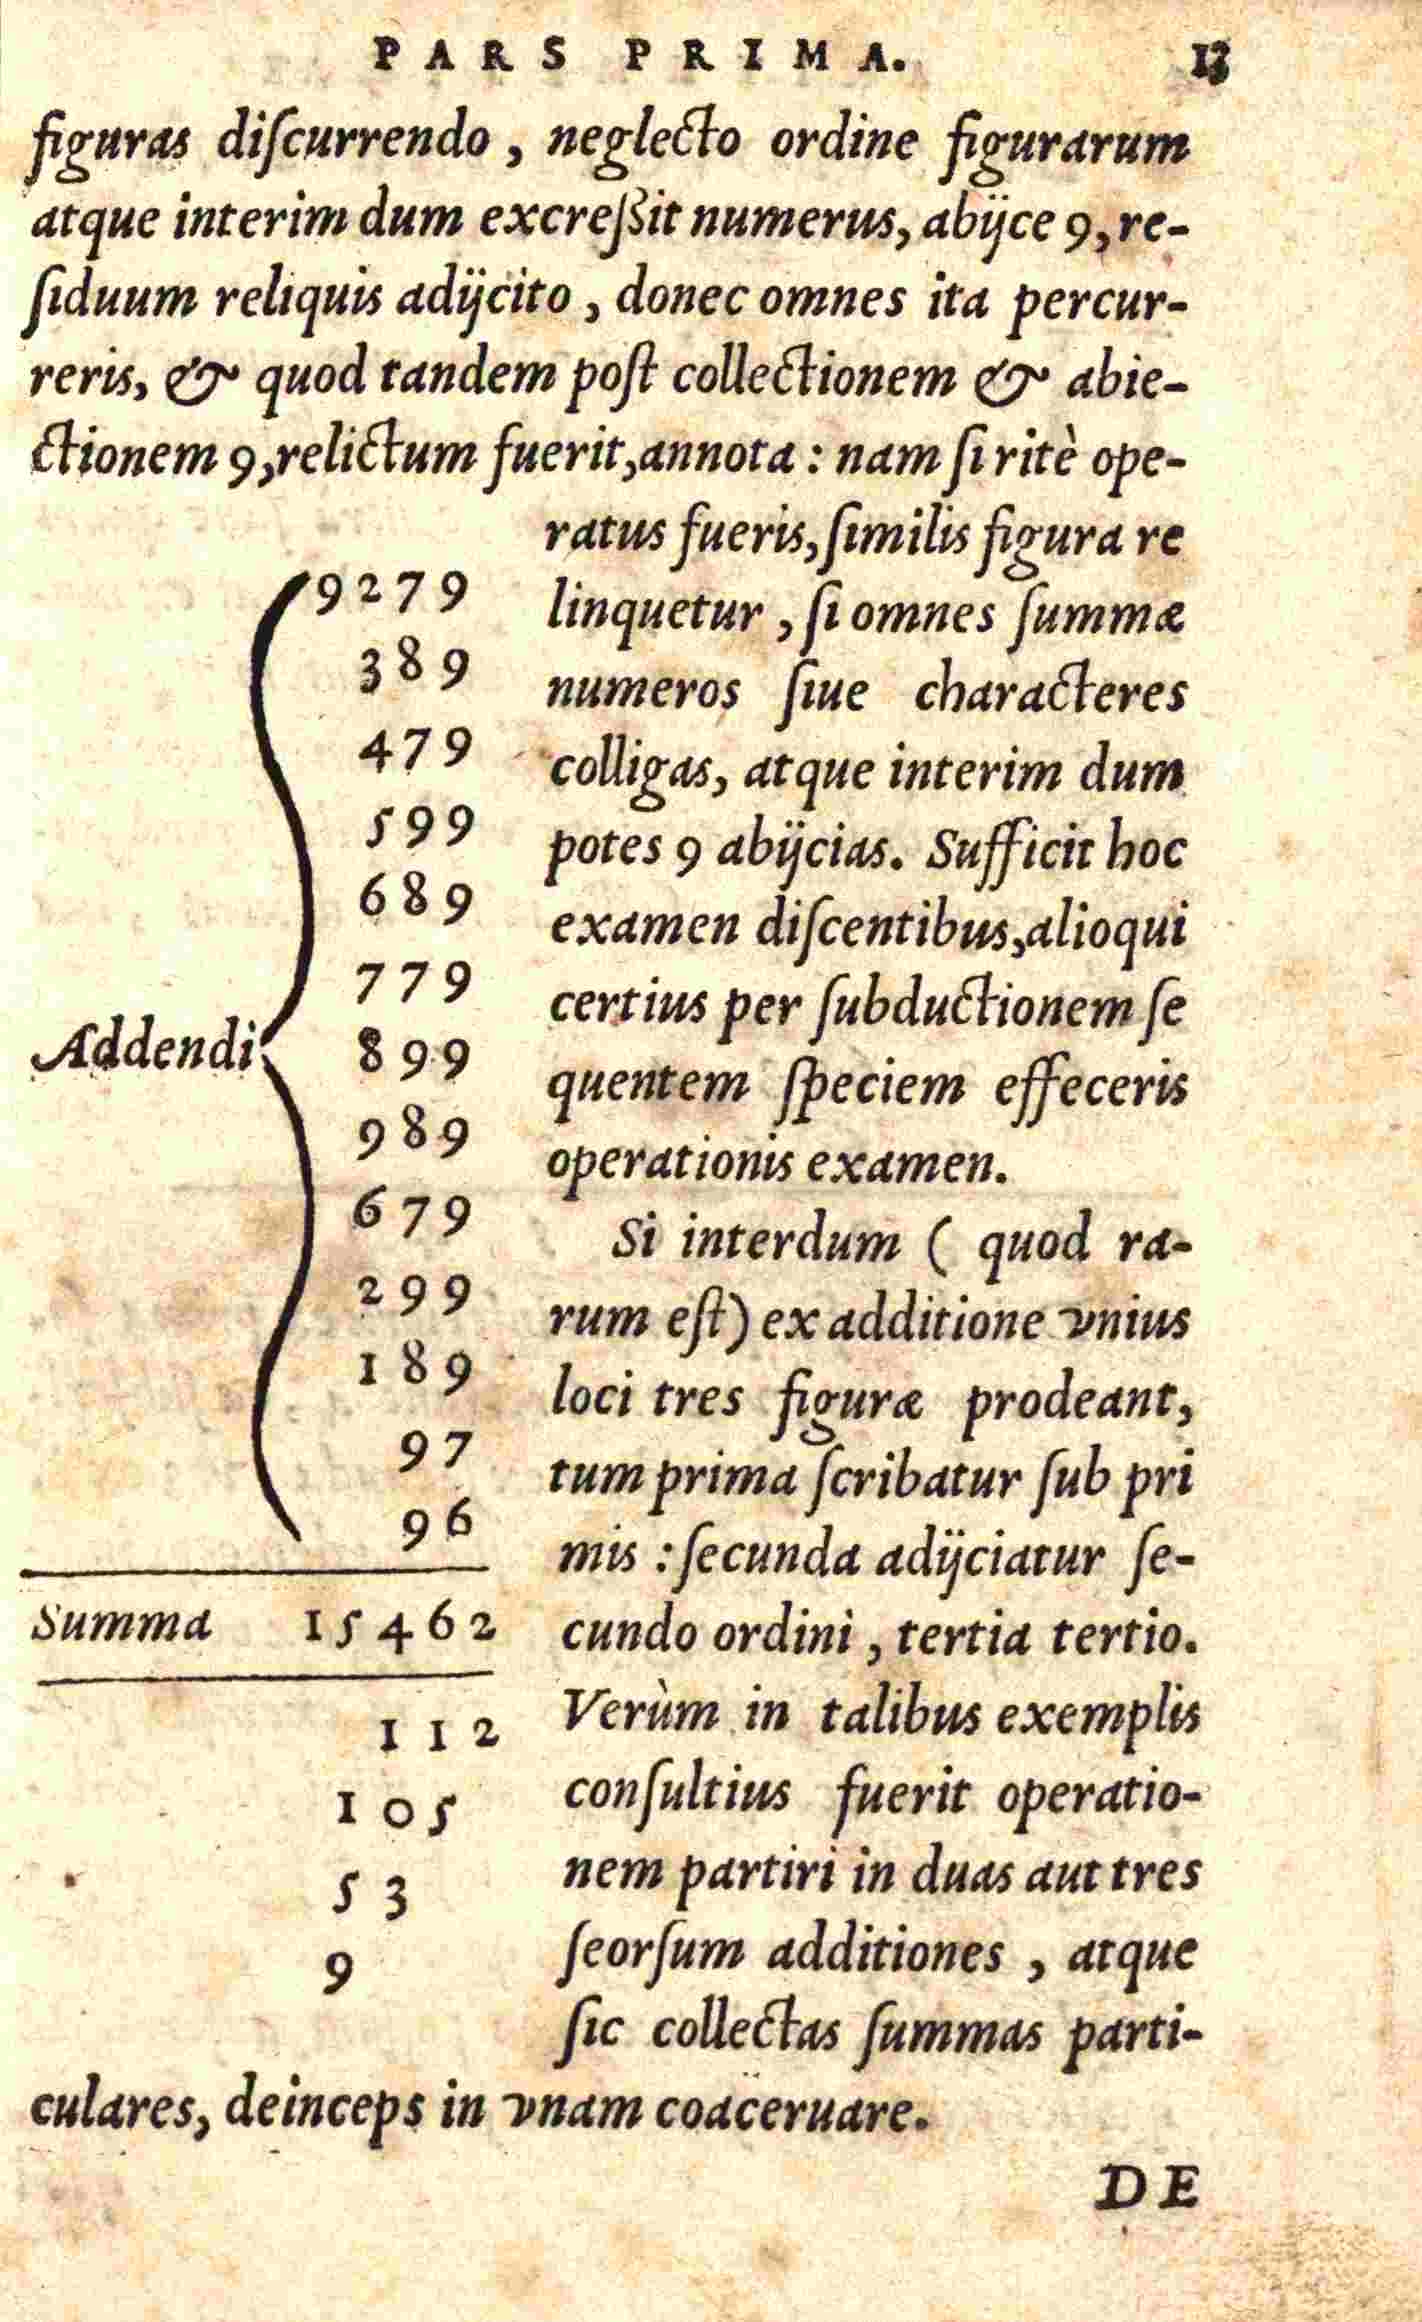 PARS PRIMA. 13
figuras diſcurrendo, neglecto ordine figurarum
atque interim dum excreßit numerus, abijce 9, re-
ſiduum reliquis adijcito, donec omnes ita percur-
reris, & quod tandem poſt collectionem & abie-
ctionem 9, relictum fuerit, annota: nam ſi ritè ope-
ratus fueris, ſimilis figura re
linquetur, ſi omnes ſummæ
numeros ſiue characteres
colligas, atque interim dum
potes 9 abijcias. Sufficit hoc
examen diſcentibus, alioqui
certius per ſubductionem ſe
quentem ſpeciem effeceris
operationis examen.
Si interdum ( quod ra-
rum eſt) ex additione vnius
loci tres figuræ prodeant,
tum prima ſcribatur ſub pri
mis: ſecunda adijciatur ſe-
cundo ordini, tertia tertio.
Verùm in talibus exemplis
conſultius fuerit operatio-
nem partiri in duas aut tres
ſeorſum additiones, atque
ſic collectas ſummas parti-
culares, deinceps in vnam coaceruare.
Addendi
9279
389
479
599
689
779
899
989
679
299
189
97
96
Summa 15462
112
105
53
9
DE